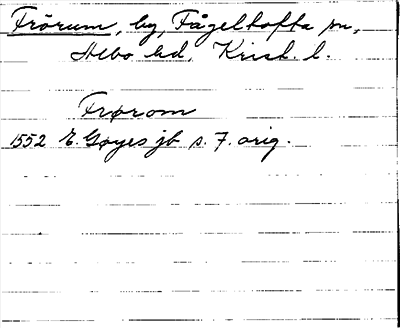 Frörum, by, Fågeltofta sn,
Albo hd, Krist. l.
Frørom
1552 E. Gøyes jb s. 7. orig.